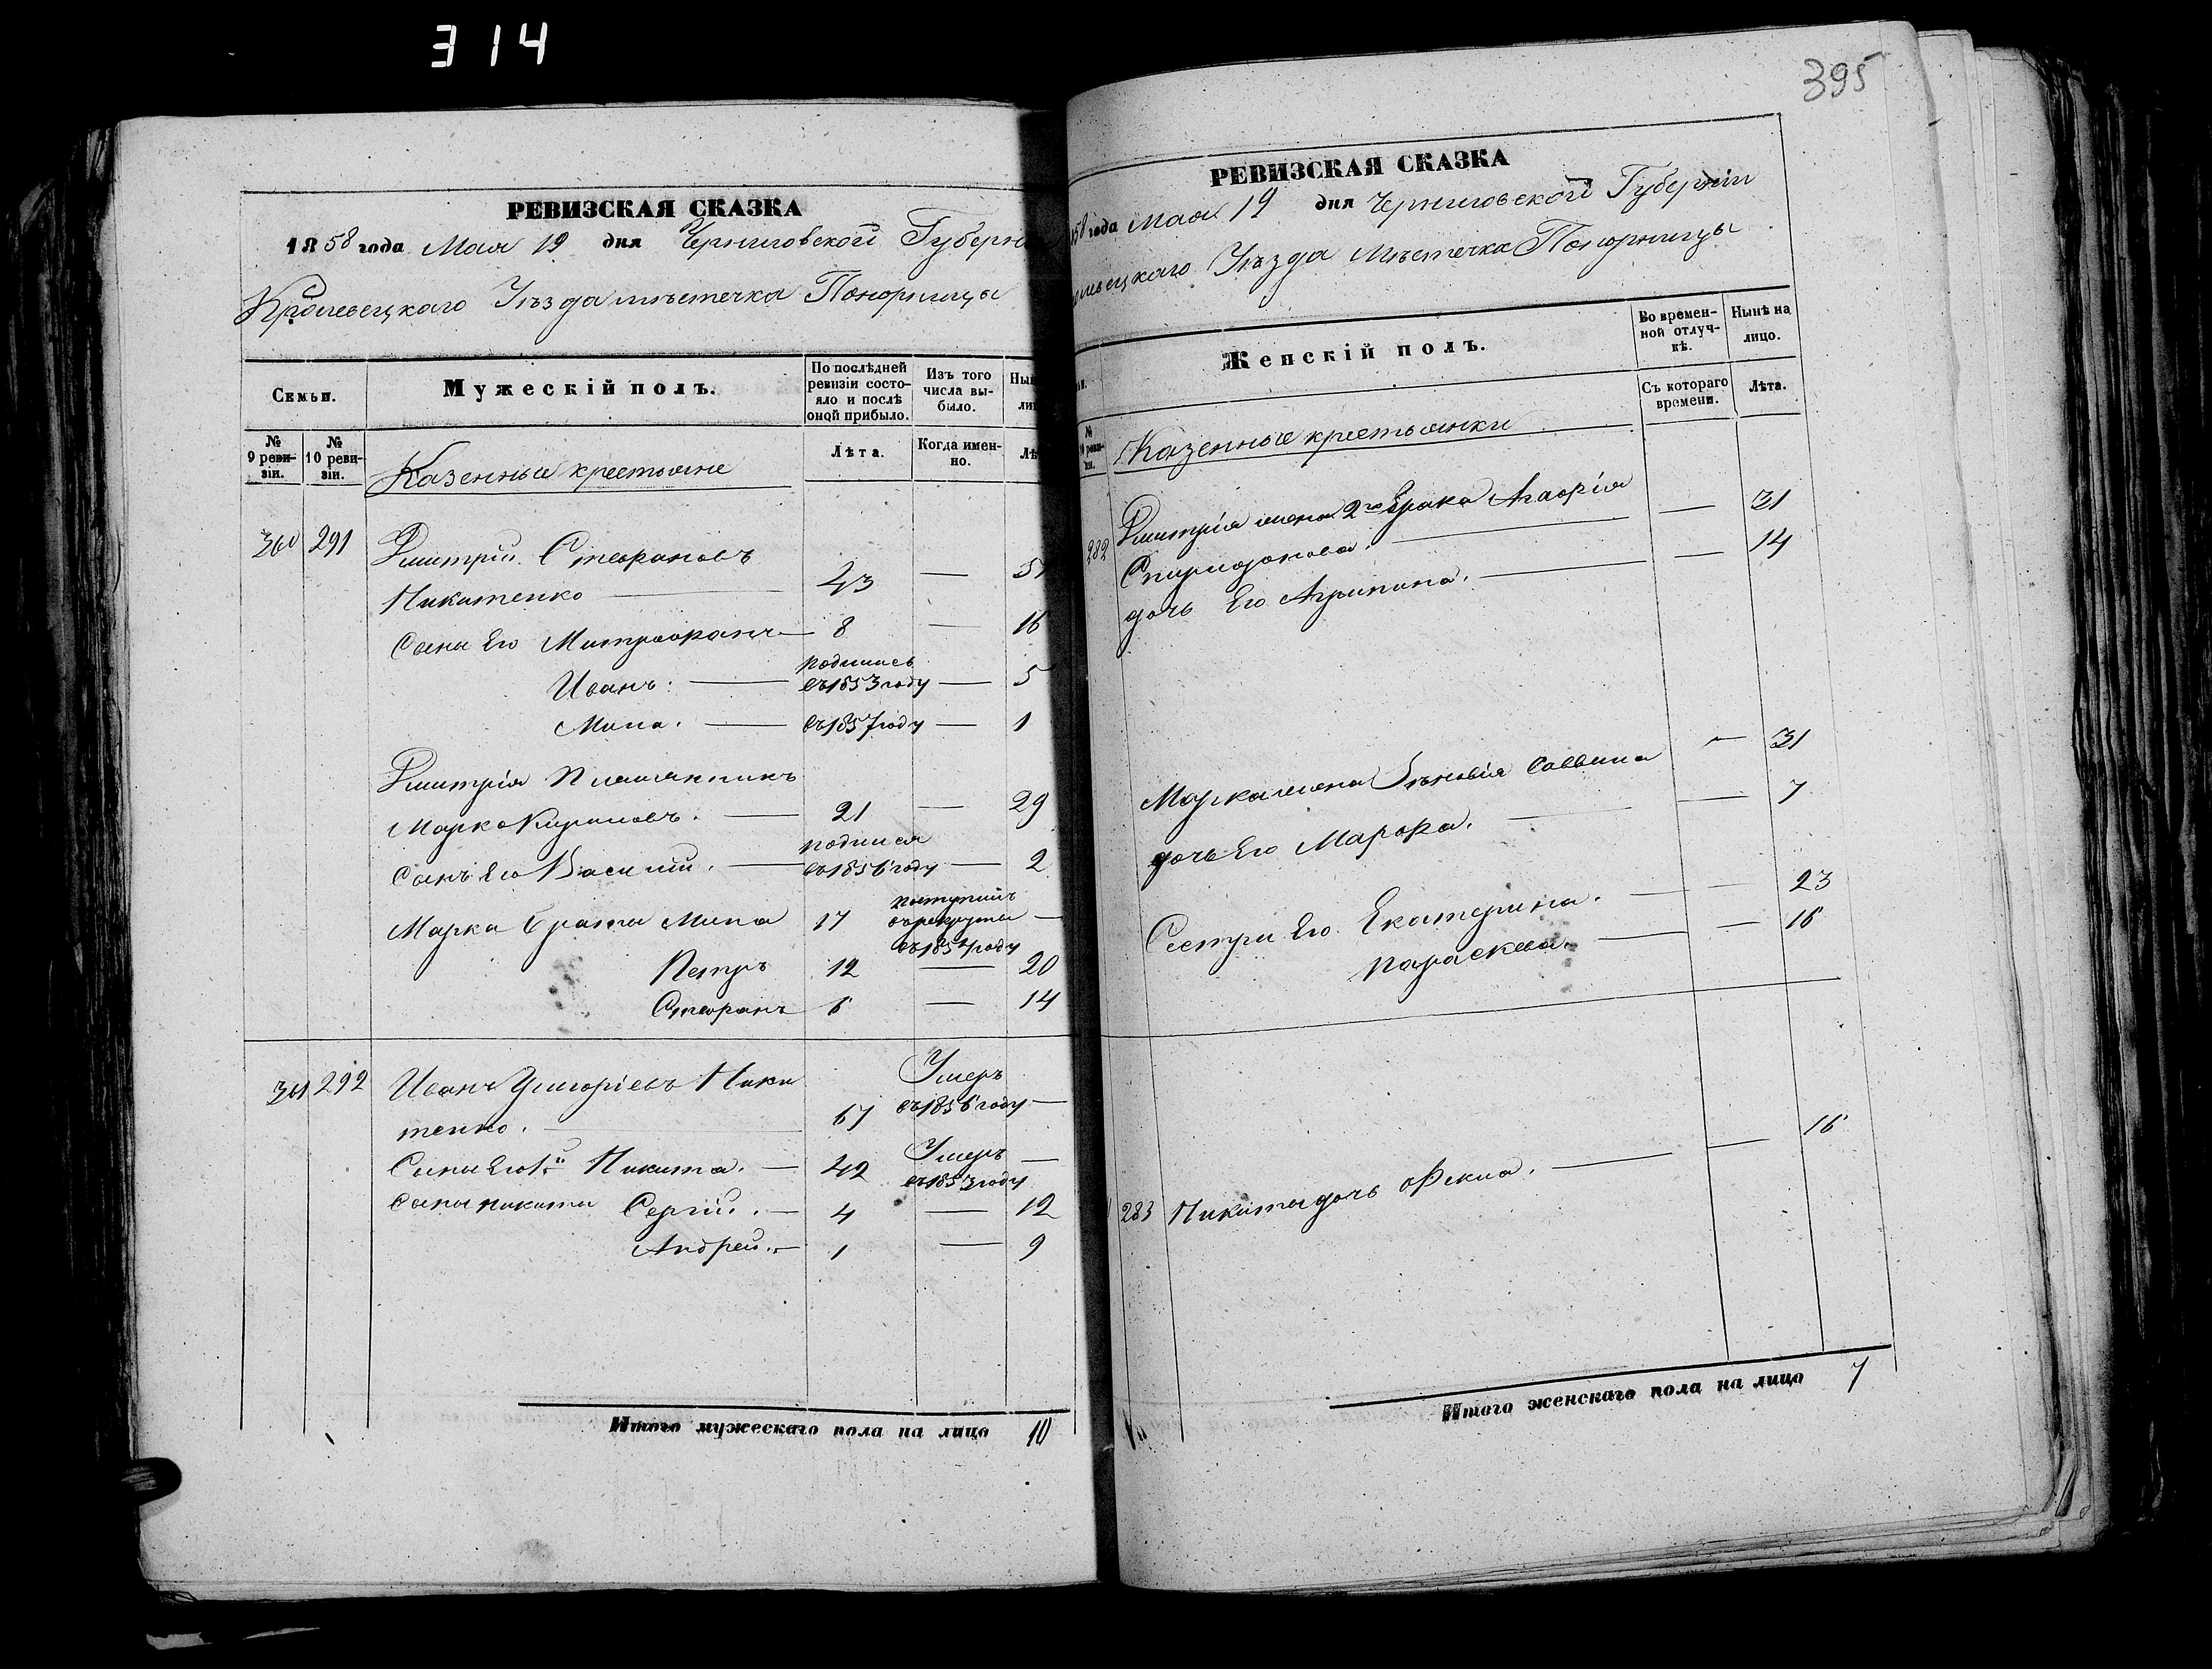 314
РЕВИЗСКАЯ СКАЗКА
1858 года Мая 19 дня Черниговской Губерн
Кролевецкаго Уѣзда мѣстечка Понорницы
Семьи.
Мужескій полъ.
По послѣдней ревизіи состояло и послѣ оной прибыло.
Изъ того числа выбыло.
Ны
ли
№ 9 ревизіи.
№ 10 ревизіи.
Казенные крестьяне
Лѣта.
Когда именно.
Лѣ
360 291 Дмитрій Стефановъ
Никитенко 43 — 51
Сыны Его Митрофанъ — 8 — 16
Иванъ. — родились въ 1853 году — 5
Мина. — въ 1857 году — 1
Дмитрія племянникъ
Марко Кириловъ. — 21 — 29
Сынъ Его Василій. — родился въ 1856 году — 2
Марка браты Мина 17 поступилъ въ рекруты въ 1854 году —
Петръ 12 — 20
Стефанъ 6 — 14
361 292 Иванъ Григоріевъ Ники
тенко. — 67 Умеръ въ 1856 году —
Сыны Его 1й Никита. — 42 Умеръ въ 1853 году —
Сыны Никиты Сергій. — 4 — 12
Андрей. — 1 — 9
Итого мужескаго пола на лицо 10
395
РЕВИЗСКАЯ СКАЗКА
58 года Мая 19 дня Черниговской Губерніи
левецкаго Уѣзда Мѣстечка Понорницы
Женскій полъ.
Во временной отлучкѣ.
Нынѣ на лицо.
Съ котораго времени.
Лѣта.
№
Казенные крестьянки
282 Дмитрія жена 2го брака Агафія
Спиридонова. — — 31
дочь Его Агрипина. — — 14
Марка жена Зѣновія Саввина — 31
дочь Его Марфа. — — 7
Сестри Его Екатерина. — — 23
Параскева. — — 16
283 Никиты дочь Фекла. — — 16
Итого женскаго пола на лицо 7